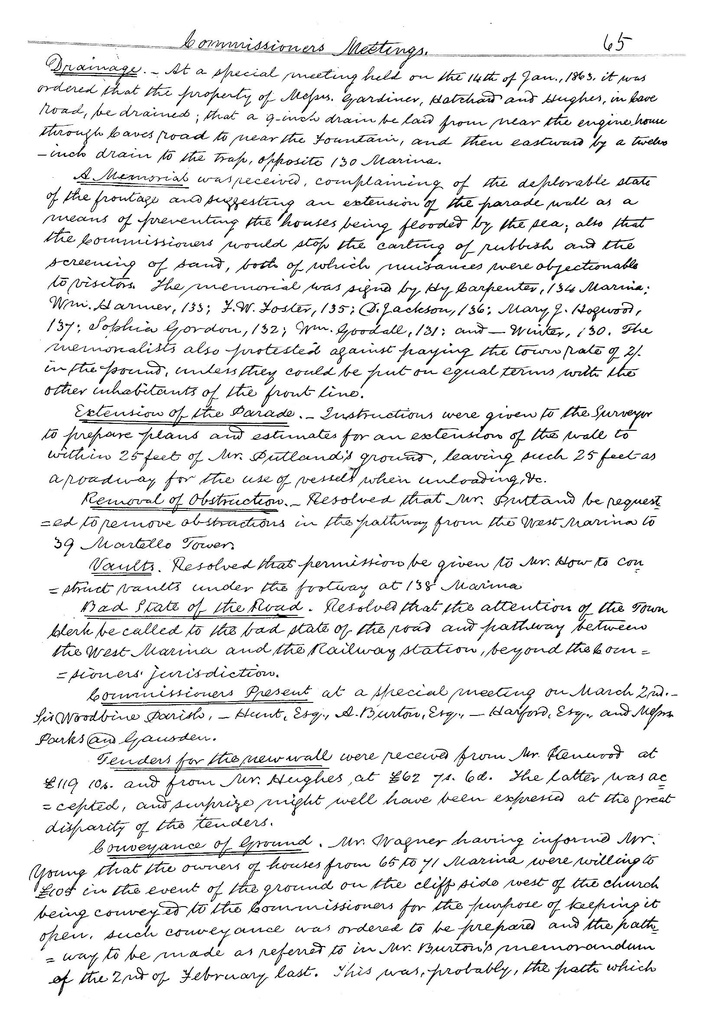 Commissioners Meetings. 65
Drainage. - At a special meeting held on the 14th of Jan., 1863. it was
ordered that the property of Messrs. Gardiner, Hatchard and Hughes, in Cave
road, be drained; that a 9-inch drain be laid from near the engine house
through Caves road to near the Fountain, and then eastward by a twelve
-inch drain to the trap, opposite 130 Marina.
A Memorial was received, complaining of the deplorable state
of the frontage and suggesting an extension of the parade wall as a
means of preventing the houses being flooded by the sea; also that
the Commissioners would stop the carting of rubbish and the
screening of sand, both of which nuisances were objectionable
to visitors. The memorial was signd by Hy Carpenter, 134 Marina;
Wm. Harmer, 133; F. W. Foster, 135; D. Jackson, 136; Mary J. Hogwood,
137; Sophia Gordon, 132; Wm. Goodall, 131; and — Winter, 130. The
memorialists also protested against paying the town rate of 2/.
in the pound, unless they could be put on equal terms with the
other inhabitants of the front line.
Extension of the Parade. - Instructions were given to the Surveyor
to prepare plans and estimates for an extension of the wall to
within 25 feet of Mr. Putland's ground, leaving such 25 feet as
a roadway for the use of vessels when unloading, &c.
Removal of Obstruction. - Resolved that Mr. Putland be request
=ed to remove obstructions in the pathway from the West Marina to
39 Martello Tower.
Vaults. Resolved that permission be given to Mr. How to con
=struct vaults under the footway at 138 Marina
Bad State of the Road. Resolved that the attention of the Town
Clerk be called to the bad state of the road and pathway between
the West Marina and the Railway station, beyond the Com=
=sioners' jurisdiction.
Commissioners Present at a special meeting on March 2nd. -
Sir Woodbine Parish, - Hunt, Esq., A. Burton, Esq., - Harford, Esq., and Messrs
Parks and Gausden.
Tenders for the new wall were received from Mr. Kenwood at
£119 10s. and from Mr. Hughes, at £62 7s. 6d. The latter was ac
=cepted, and surprize might well have been expressed at the great
disparity of the tenders.
Conveyance of Ground. Mr. Wagner having informed Mr.
Young that the owners of houses from 65 to 71 Marina were willing to
£105 in the event of the ground on the cliff side west of the church
being conveyed to the Commissioners for the purpose of keeping it
open, such conveyance was ordered to be prepared and the path=
=way to be made as referred to in Mr. Burton's memorandum
of the 2nd of February last. This was, probably, the path which